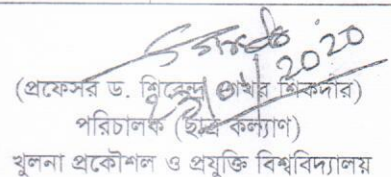 ২০২০
(প্রফেসর ড. শিবেন্দ্র শেখর শিকদার)
পরিচালক (ছাত্র কল্যাণ)
খুলনা প্রকৌশল ও প্রযুক্তি বিশ্ববিদ্যালয়